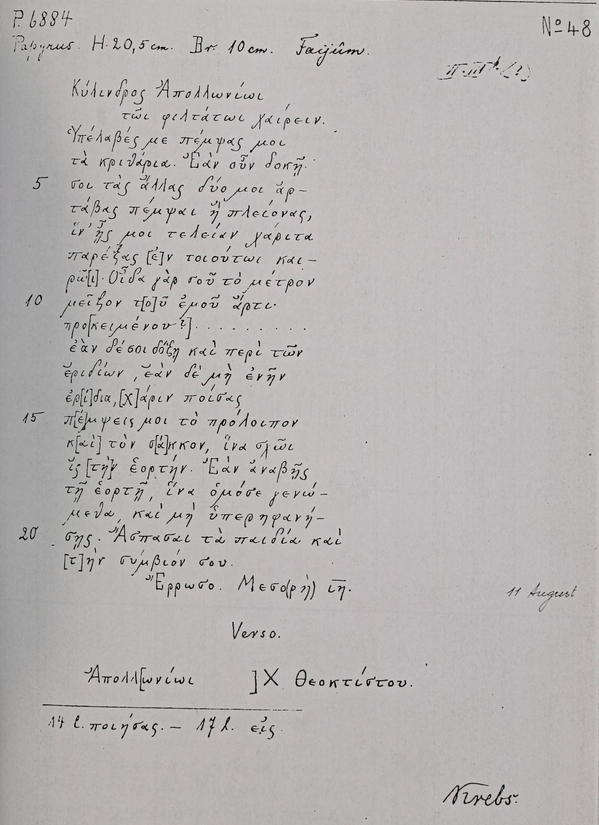 P. 6884
No 48
Papyrus. H. 20,5 cm. Br. 10 cm. Faijûm.
Κύλινδρος Ἀπολλωνίωι
τῶι φιλτάτωι χαίρειν.
Ὑπέλαβές με πέμψας μοι
τὰ κριθάρια. Ἐὰν οὖν δοκῇ
5 σοι τὰς ἄλλας δύο μοι ἀρ-
τάβας πέμψαι ἢ πλείονας,
ἵν' ᾖς μοι τελείαν χάριτα
παρέξας [ἐ]ν τοιούτωι και-
ρῶ[ι]. Οἶδα γὰρ σοῦ τὸ μέτρον
10 μεῖζον τ[ο]ῦ ἐμοῦ ἄρτι
προ[κειμένου?]. . . . . . . . .
ἐὰν δέ σοι δόξῃ καὶ περὶ τῶν
ἐριδίων, ἐὰν δὲ μὴ ἐνῆν
ἐρ[ί]δια, [χ]άριν ποίσας
15 π[έ]μψεις μοι τὸ πρόλοιπον
κ[αὶ] τὸν σ[ά]κκον, ἵνα σχῶι
ἰς [τὴ]ν ἑορτήν. Ἐὰν ἀναβῇς
τῇ ἑορτῇ, ἵνα ὁμόσε γενώ-
μεθα, καὶ μὴ ὑπερηφανή-
20 σῃς. Ἄσπασαι τὰ παιδία καὶ
[τ]ὴν σύμβιόν σου.
Ἔρρωσο. Μεσο(ρὴ) ιη̅.
11 August
Verso.
Ἀπολλ[ωνίωι ] X Θεοκτίστου.
14 l. ποιήσας. — 17 l. εἰς.
Krebs.